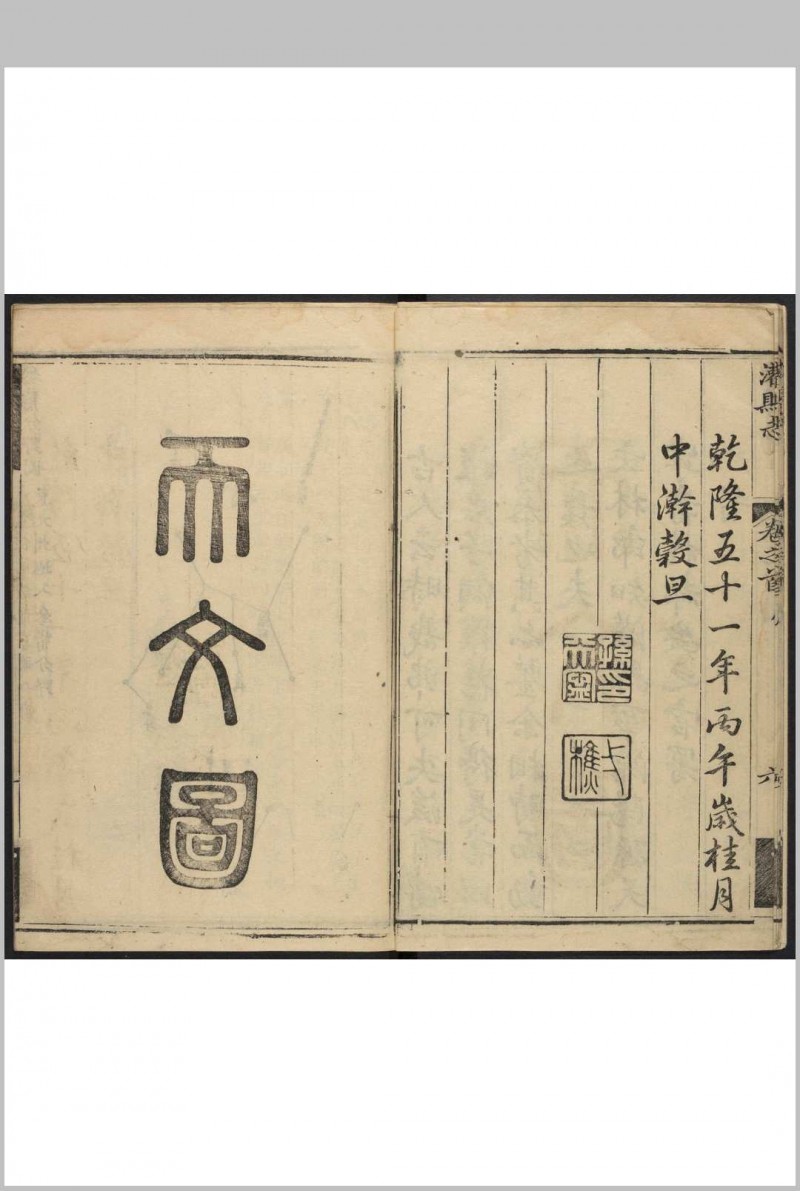 卷之首
六
乾隆五十一年丙午歲桂月
中澣穀旦
天文圖